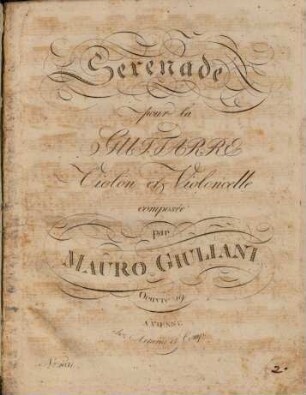 Serenade
pour la
GUITARRE
Violon et Violoncelle
composée
par
MAURO GIULIANI
Oeuvre 19
A VIENNE
Artaria et Comp.
2.